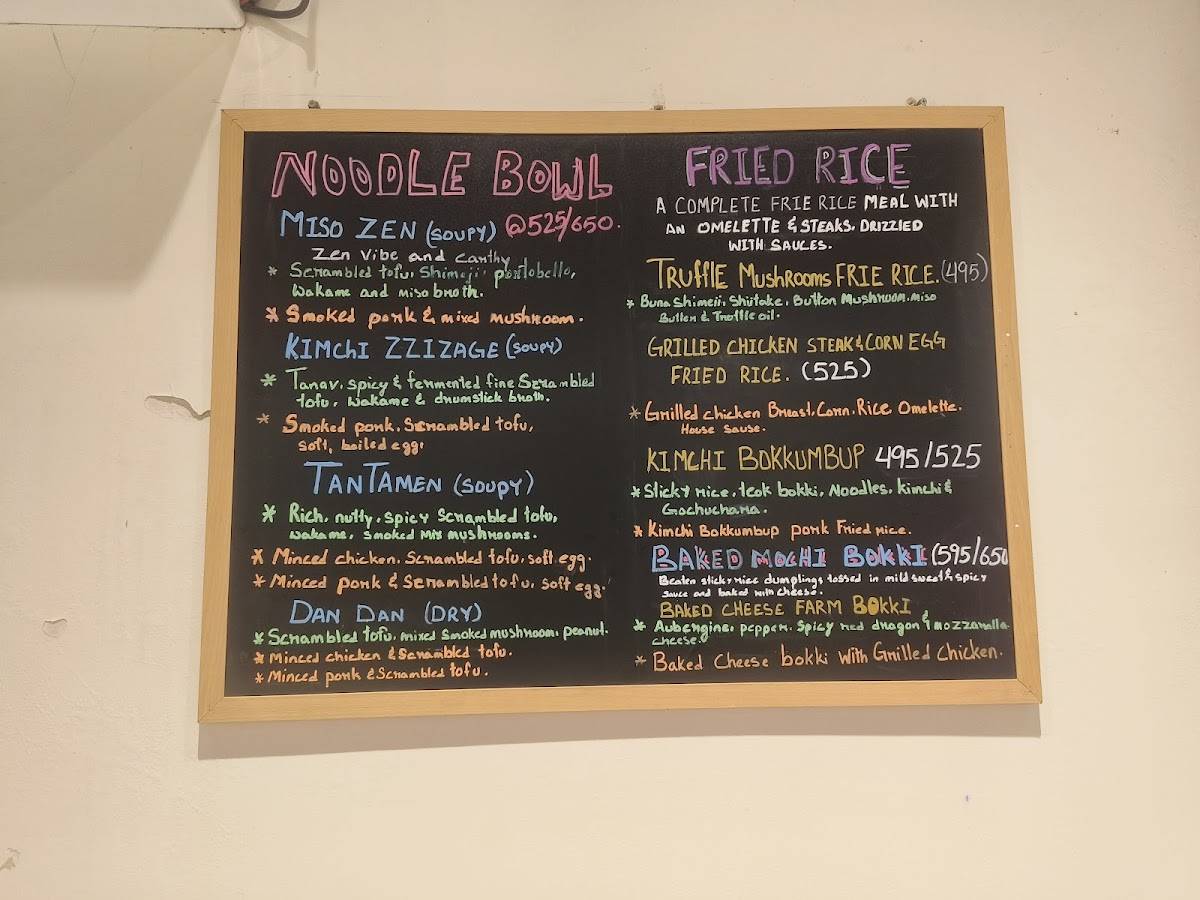 NOODLE BOWL
MISO ZEN (SOUPY) @525/650.
Zen Vibe and earthy
* Scrambled tofu, Shimeji, portobello,
Wakame and miso broth.
* Smoked pork & mixed mushroom.
KIMChI ZZIZAGE (SOUPY)
* Tanav, spicy & fermented fine Scrambled
tofu, wakame & drumstick broth.
* Smoked pork, Scrambled tofu,
soft, boiled egg.
TANTAMEN (SOUPY)
* Rich, nutty, spicy Scrambled tofu,
wakame, smoked mix mushrooms.
* Minced chicken, Scrambled tofu, soft egg.
* Minced pork & Scrambled tofu, soft egg.
DAN DAN (DRY)
* Scrambled tofu, mixed smoked mushroom, peanut.
* Minced chicken & Scrambled tofu.
* Minced pork & Scrambled tofu.
FRIED RICE
A COMPLETE FRIE RICE MEAL WITH
AN OMELETTE & STEAKS, DRIZZIED
WITH SAUCES.
TRUFFLE MUSHROOMS FRIE RICE. (495)
* Buna Shimeji, Shiitake, Button Mushroom, miso
Butter & Truffle oil.
GRILLED CHICKEN STEAK & CORN EGG
FRIED RICE. (525)
* Grilled chicken Breast, Corn, Rice, Omelette.
House Sause.
KIMCHI BOKKUMBUP 495/525
* Sticky rice, teok bokki, Noodles, kimchi &
Gochuchana.
* Kimchi Bokkumbup pork Fried rice.
BAKED MOCHI BOKKI (595/650
Beaten sticky rice dumplings tossed in mild sweet & spicy
sauce and baked with cheese.
BAKED CHEESE FARM BOKKI
* Aubergine, pepper, Spicy red dragon & mozzarella
cheese.
* Baked Cheese bokki with Grilled Chicken.